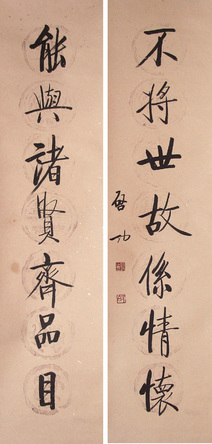 不將世故係情懷
啓功
能與諸賢齊品目